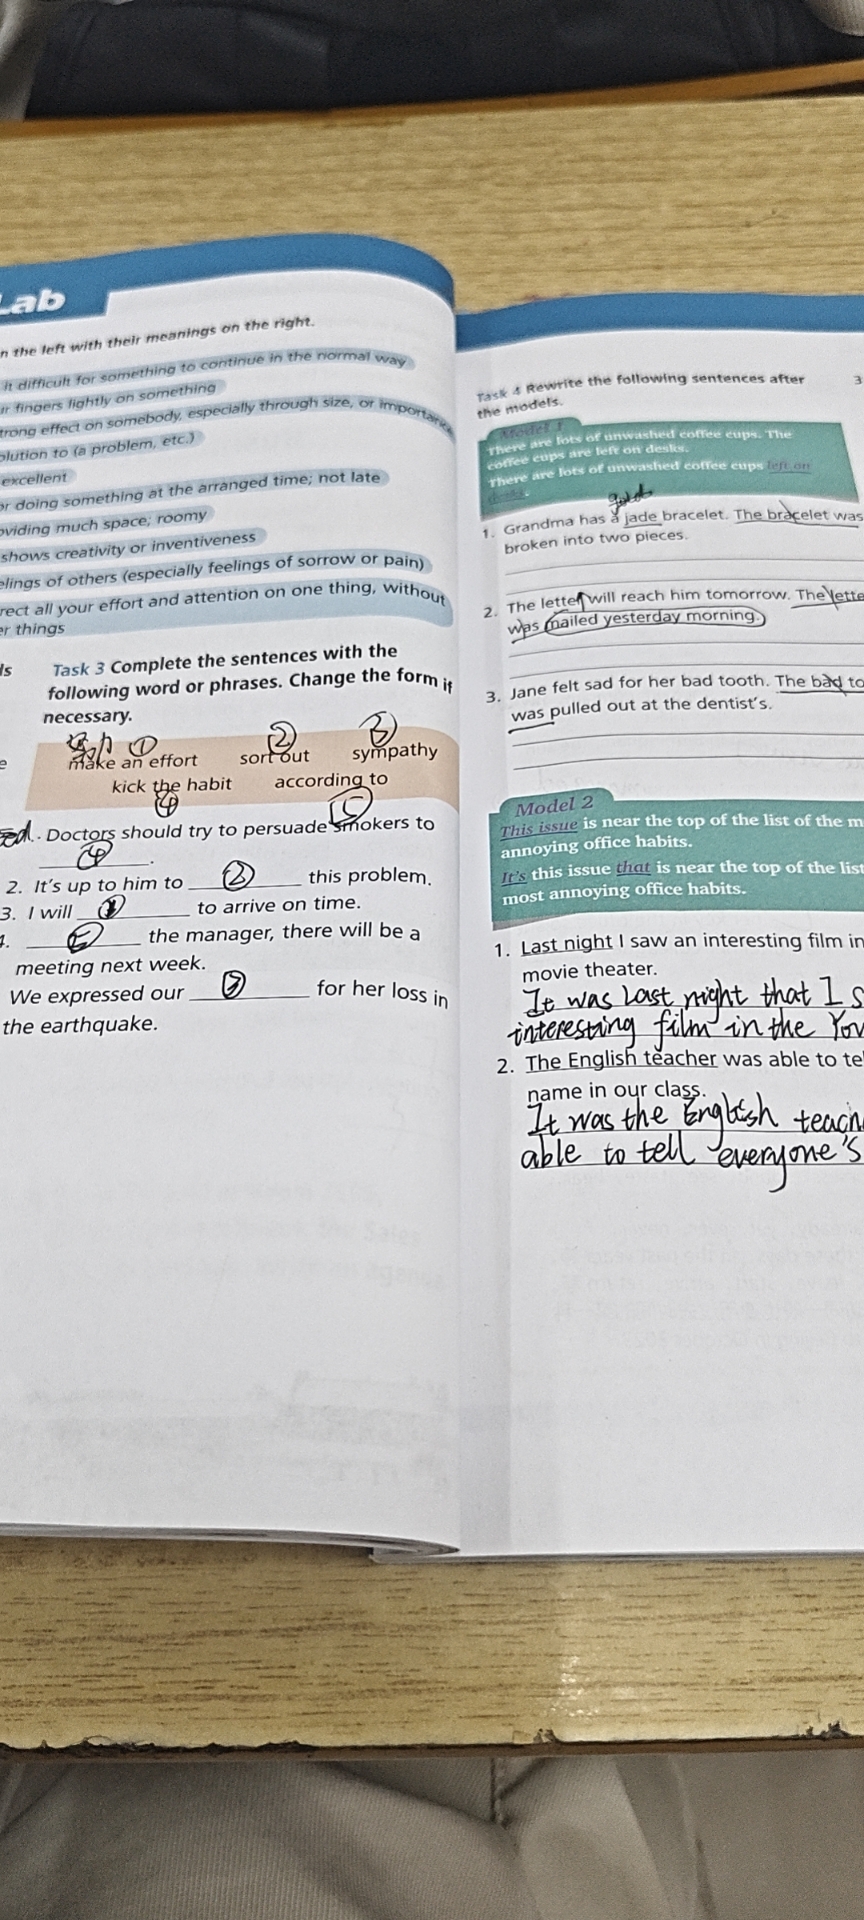 Lab
n the left with their meanings on the right.
it difficult for something to continue in the normal way
ur fingers lightly on something
trong effect on somebody, especially through size, or importance
olution to (a problem, etc.)
excellent
or doing something at the arranged time; not late
oviding much space; roomy
shows creativity or inventiveness
elings of others (especially feelings of sorrow or pain)
rect all your effort and attention on one thing, without
er things
ls
Task 3 Complete the sentences with the
following word or phrases. Change the form if
necessary.
e
① ② ③
make an effort sort out sympathy
kick the habit according to
④ ⑤
Doctors should try to persuade smokers to
④ .
2. It's up to him to ② this problem.
3. I will ① to arrive on time.
4. ⑤ the manager, there will be a
meeting next week.
We expressed our ③ for her loss in
the earthquake.
Task 4 Rewrite the following sentences after
the models.
3
Model 1
There are lots of unwashed coffee cups. The
coffee cups are left on desks.
There are lots of unwashed coffee cups left on
desks.
1. Grandma has a jade bracelet. The bracelet was
broken into two pieces.
2. The letter will reach him tomorrow. The lette
was mailed yesterday morning.
3. Jane felt sad for her bad tooth. The bad to
was pulled out at the dentist's.
Model 2
This issue is near the top of the list of the m
annoying office habits.
It's this issue that is near the top of the list
most annoying office habits.
1. Last night I saw an interesting film in
movie theater.
It was last night that I s
interesting film in the You
2. The English teacher was able to te
name in our class.
It was the English teach
able to tell everyone's